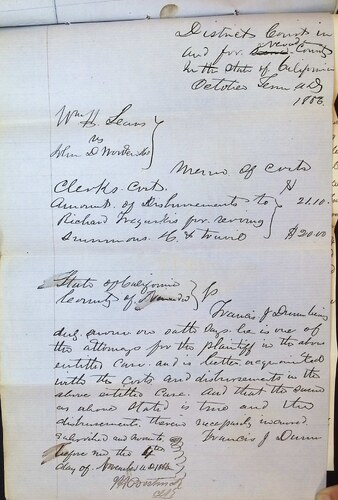 District Court in
and for Nevada County
In the State of California
October Term AD
1856.
Wm H. Lears
vs
John D
Memo of Costs
Clerks Costs. $ 21.10.
Amount of Disbursements to
Richard for serving
Summons &c & travel $20.00
State of California
County of Nevada
Francis J Dunn being
duly sworn on oath says he is one of
the attorneys for the plaintiff in the above
entitled cause. and is better acquainted
with the Costs and disbursements in the
above entitled Case. And that the same
as above Stated is true and the
disbursements therein necessarily incurred.
Subscribed and sworn to Francis J Dunn
before me the 4
day of November AD 1856